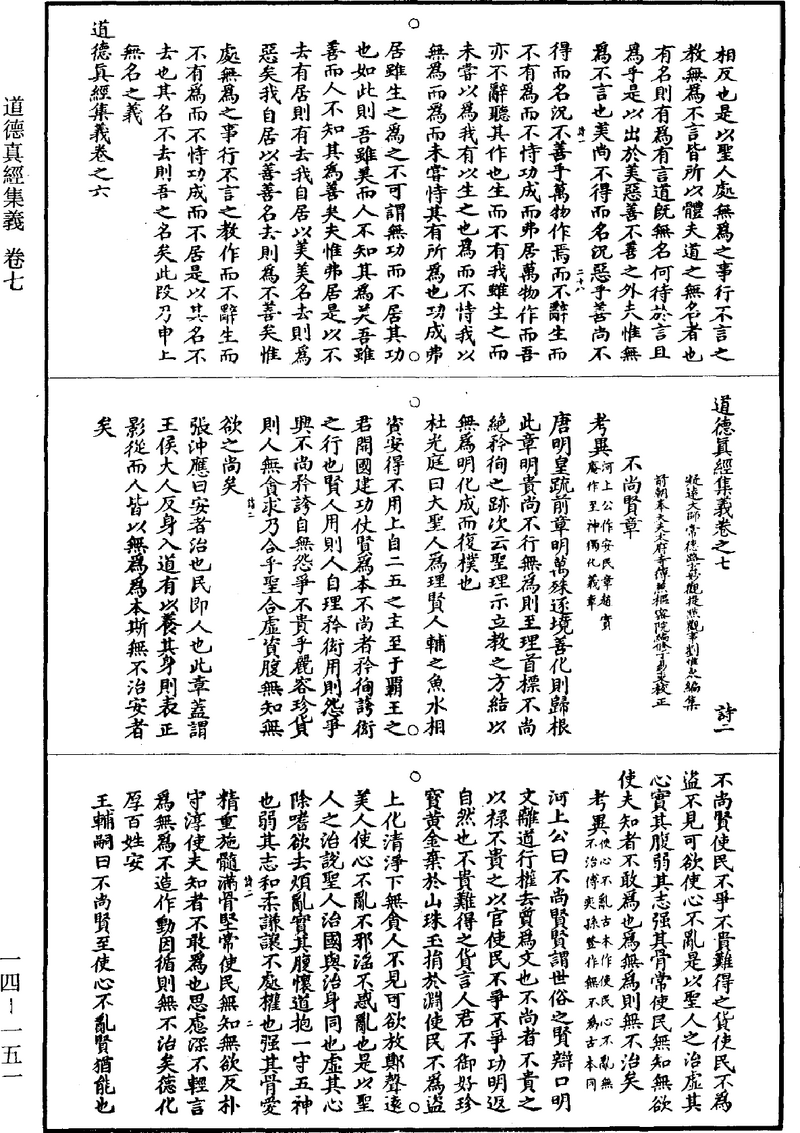 相反也是以聖人處無為之事行不言之
教無為不言皆所以體夫道之無名者也
有名則有為有言道既無名何待於言且
為乎是以出於美惡善不善之外夫惟無
為不言也美尚不得而名況惡乎善尚不
得而名況不善乎萬物作焉而不辭生而
不有為而不恃功成而弗居萬物作而吾
亦不辭聽其作也生而不有我雖生之而
未嘗以為我有以生之也為而不恃我以
無為而為而未嘗恃其有所為也功成弗
居雖生之為之不可謂無功而不居其功
也如此則吾雖美而人不知其為美吾雖
善而人不知其為善矣夫惟弗居是以不
去有居則有去我自居以美美名去則為
惡矣我自居以善善名去則為不善矣惟
處無為之事行不言之教作而不辭生而
不有為而不恃功成而不居是以其名不
去也其名不去則吾之名矣此段乃申上
無名之義
道德真經集義卷之六
道德真經集義卷之七
詩二
不尚賢章
考異河上公作安民章趙實
庵作至神獨化義章
唐明皇䟽前章明萬殊逐境善化則歸根
此章明貴尚不行無為則至理首標不尚
絕矜徇之跡次云聖理示立教之方結以
無為明化成而復樸也
杜光庭曰大聖人為理賢人輔之魚水相
資安得不用上自二五之主至于霸王之
君開國建功仗賢為本不尚者矜徇誇衒
之行也賢人用則人自理矜衒用則怨爭
興不尚矜誇自無怨爭不貴乎麗容珍貨
則人無貪求乃合乎聖合虛資腹無知無
欲之尚矣
張沖應曰安者治也民即人也此章蓋謂
王侯大人反身入道有以養其身則表正
影從而人皆以無為為本斯無不治安者
矣
不尚賢使民不爭不貴難得之貨使民不為
盜不見可欲使心不亂是以聖人之治虛其
心實其腹弱其志强其骨常使民無知無欲
使夫知者不敢為也為無為則無不治矣
考異使心不亂古本作使民心不亂無
不治傅奕孫登作無不為古本同
河上公曰不尚賢賢謂世俗之賢辯口明
文離道行權去質為文也不尚者不貴之
以祿不貴之以官使民不爭不爭功明返
自然也不貴難得之貨言人君不御好珍
寶黃金棄於山珠玉捐於淵使民不為盜
上化清淨下無貪人不見可欲放鄭聲遠
美人使心不亂不邪淫不惑亂也是以聖
人之治說聖人治國與治身同也虛其心
除嗜欲去煩亂實其腹懷道抱一守五神
也弱其志和柔謙讓不處權也强其骨愛
精重施髓滿骨堅常使民無知無欲反朴
守淳使夫知者不敢為也思慮深不輕言
為無為不造作動因循則無不治矣德化
厚百姓安
王輔嗣曰不尚賢至使心不亂賢猶能也
道德真經集義 卷七
一四-一五一